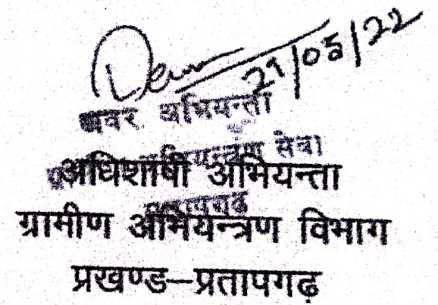 21/05/22
अवर अभियन्ता
सेवा
अधिशाषी अभियन्ता
प्रतापगढ़
ग्रामीण अभियन्त्रण विभाग
प्रखण्ड-प्रतापगढ़